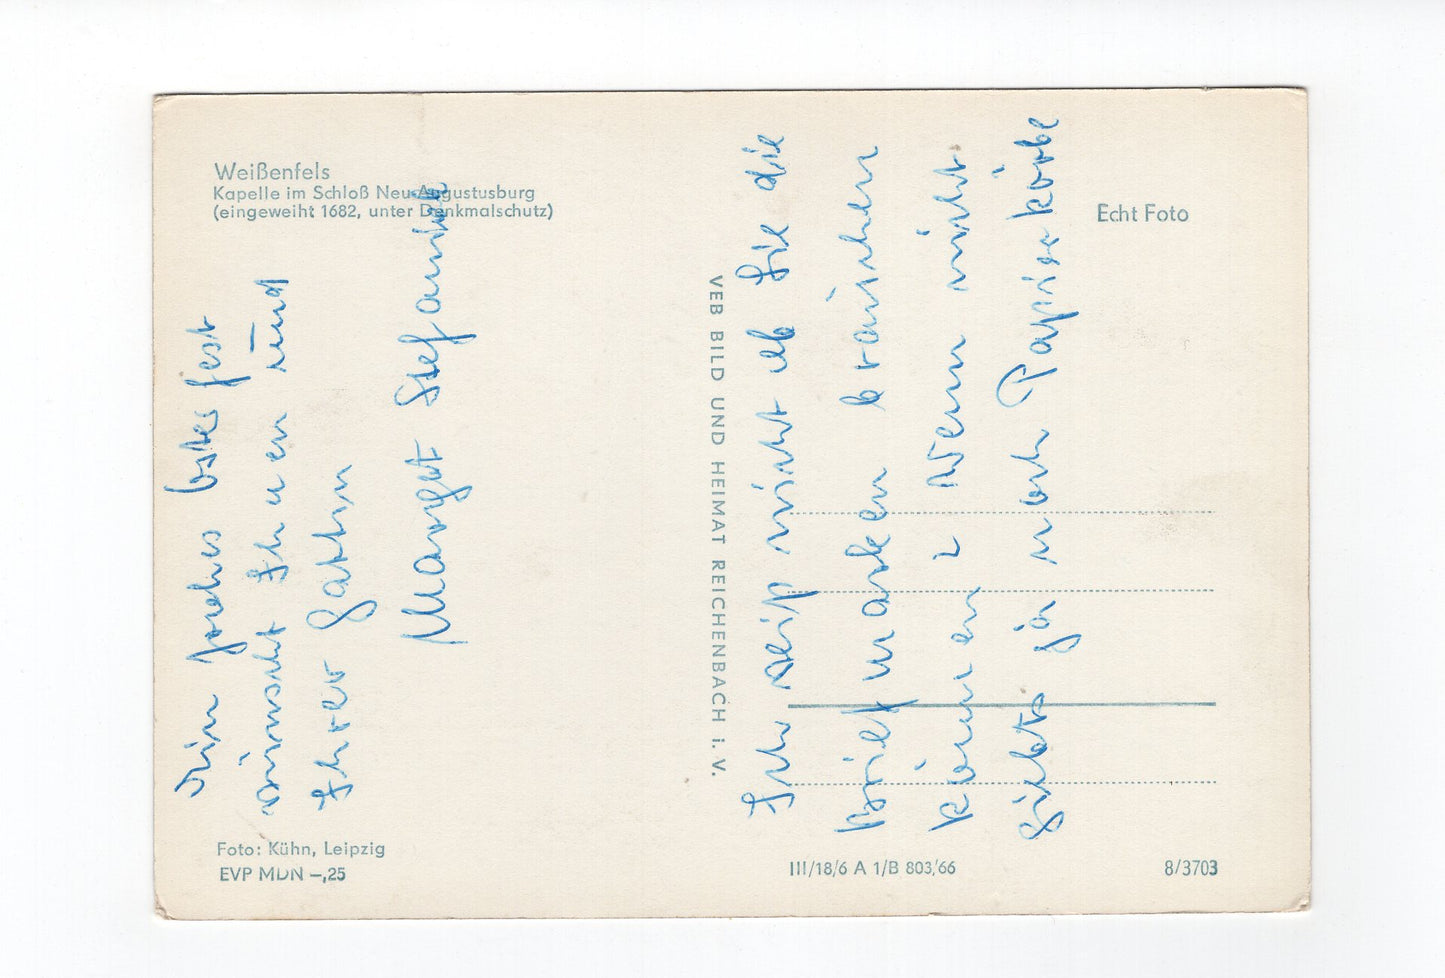 Weißenfels
Kapelle im Schloß Neu-Augustusburg
(eingeweiht 1682, unter Denkmalschutz)
Ein frohes Osterfest
wünscht Ihnen und
Ihrer Gattin
Margot Stefanick
Foto: Kühn, Leipzig
EVP MDN –,25
VEB BILD UND HEIMAT REICHENBACH i. V.
Echt Foto
Ich weiß nicht ob Sie die
Briefmarken brauchen
können? Wenn nicht
gibts ja noch Papierkörbe
III/18/6 A 1/B 803/66
8/3703